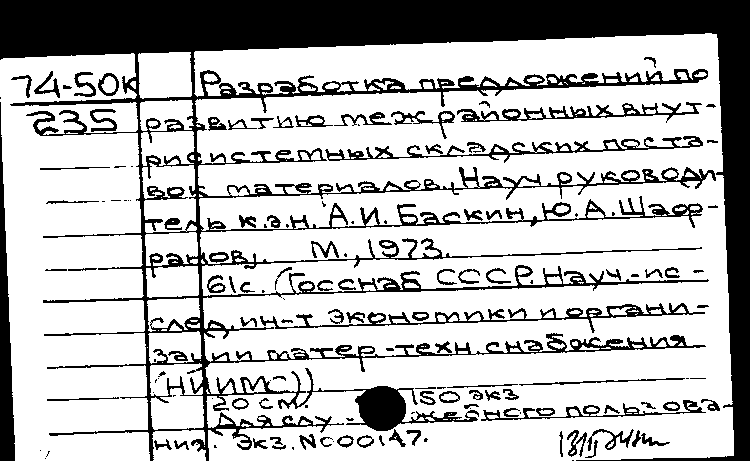 74-50к Разработка предложений по
235 развитию межрайонных внут-
рисистемных складских поста-
вок материалов., Науч. руководи-
тель к.э.н. А.И. Баскин, Ю.А. Шаф-
ранов,. М., 1973.
61с. (Госснаб СССР. Науч.-ис-
след. ин-т экономики и органи-
зации матер.-техн. снабжения
(НИИМС)).
20 см. 150 экз
Для слу - жебного пользова-
ния. Экз. №00147.